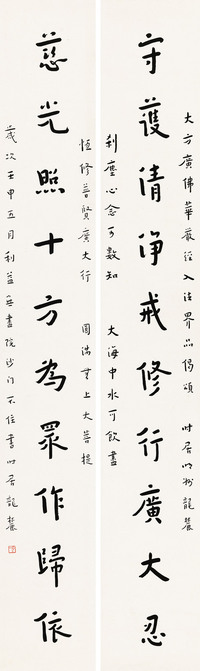 大方廣佛華嚴經入法界品偈頌 時居明州龍麓
守護清淨戒修行廣大忍
剎塵心念可數知 大海中水可飲盡
恒修普賢廣大行 圓滿無上大菩提
慈光照十方為眾作歸依
歲次壬申五月利益書院沙門不住書時居龍麓